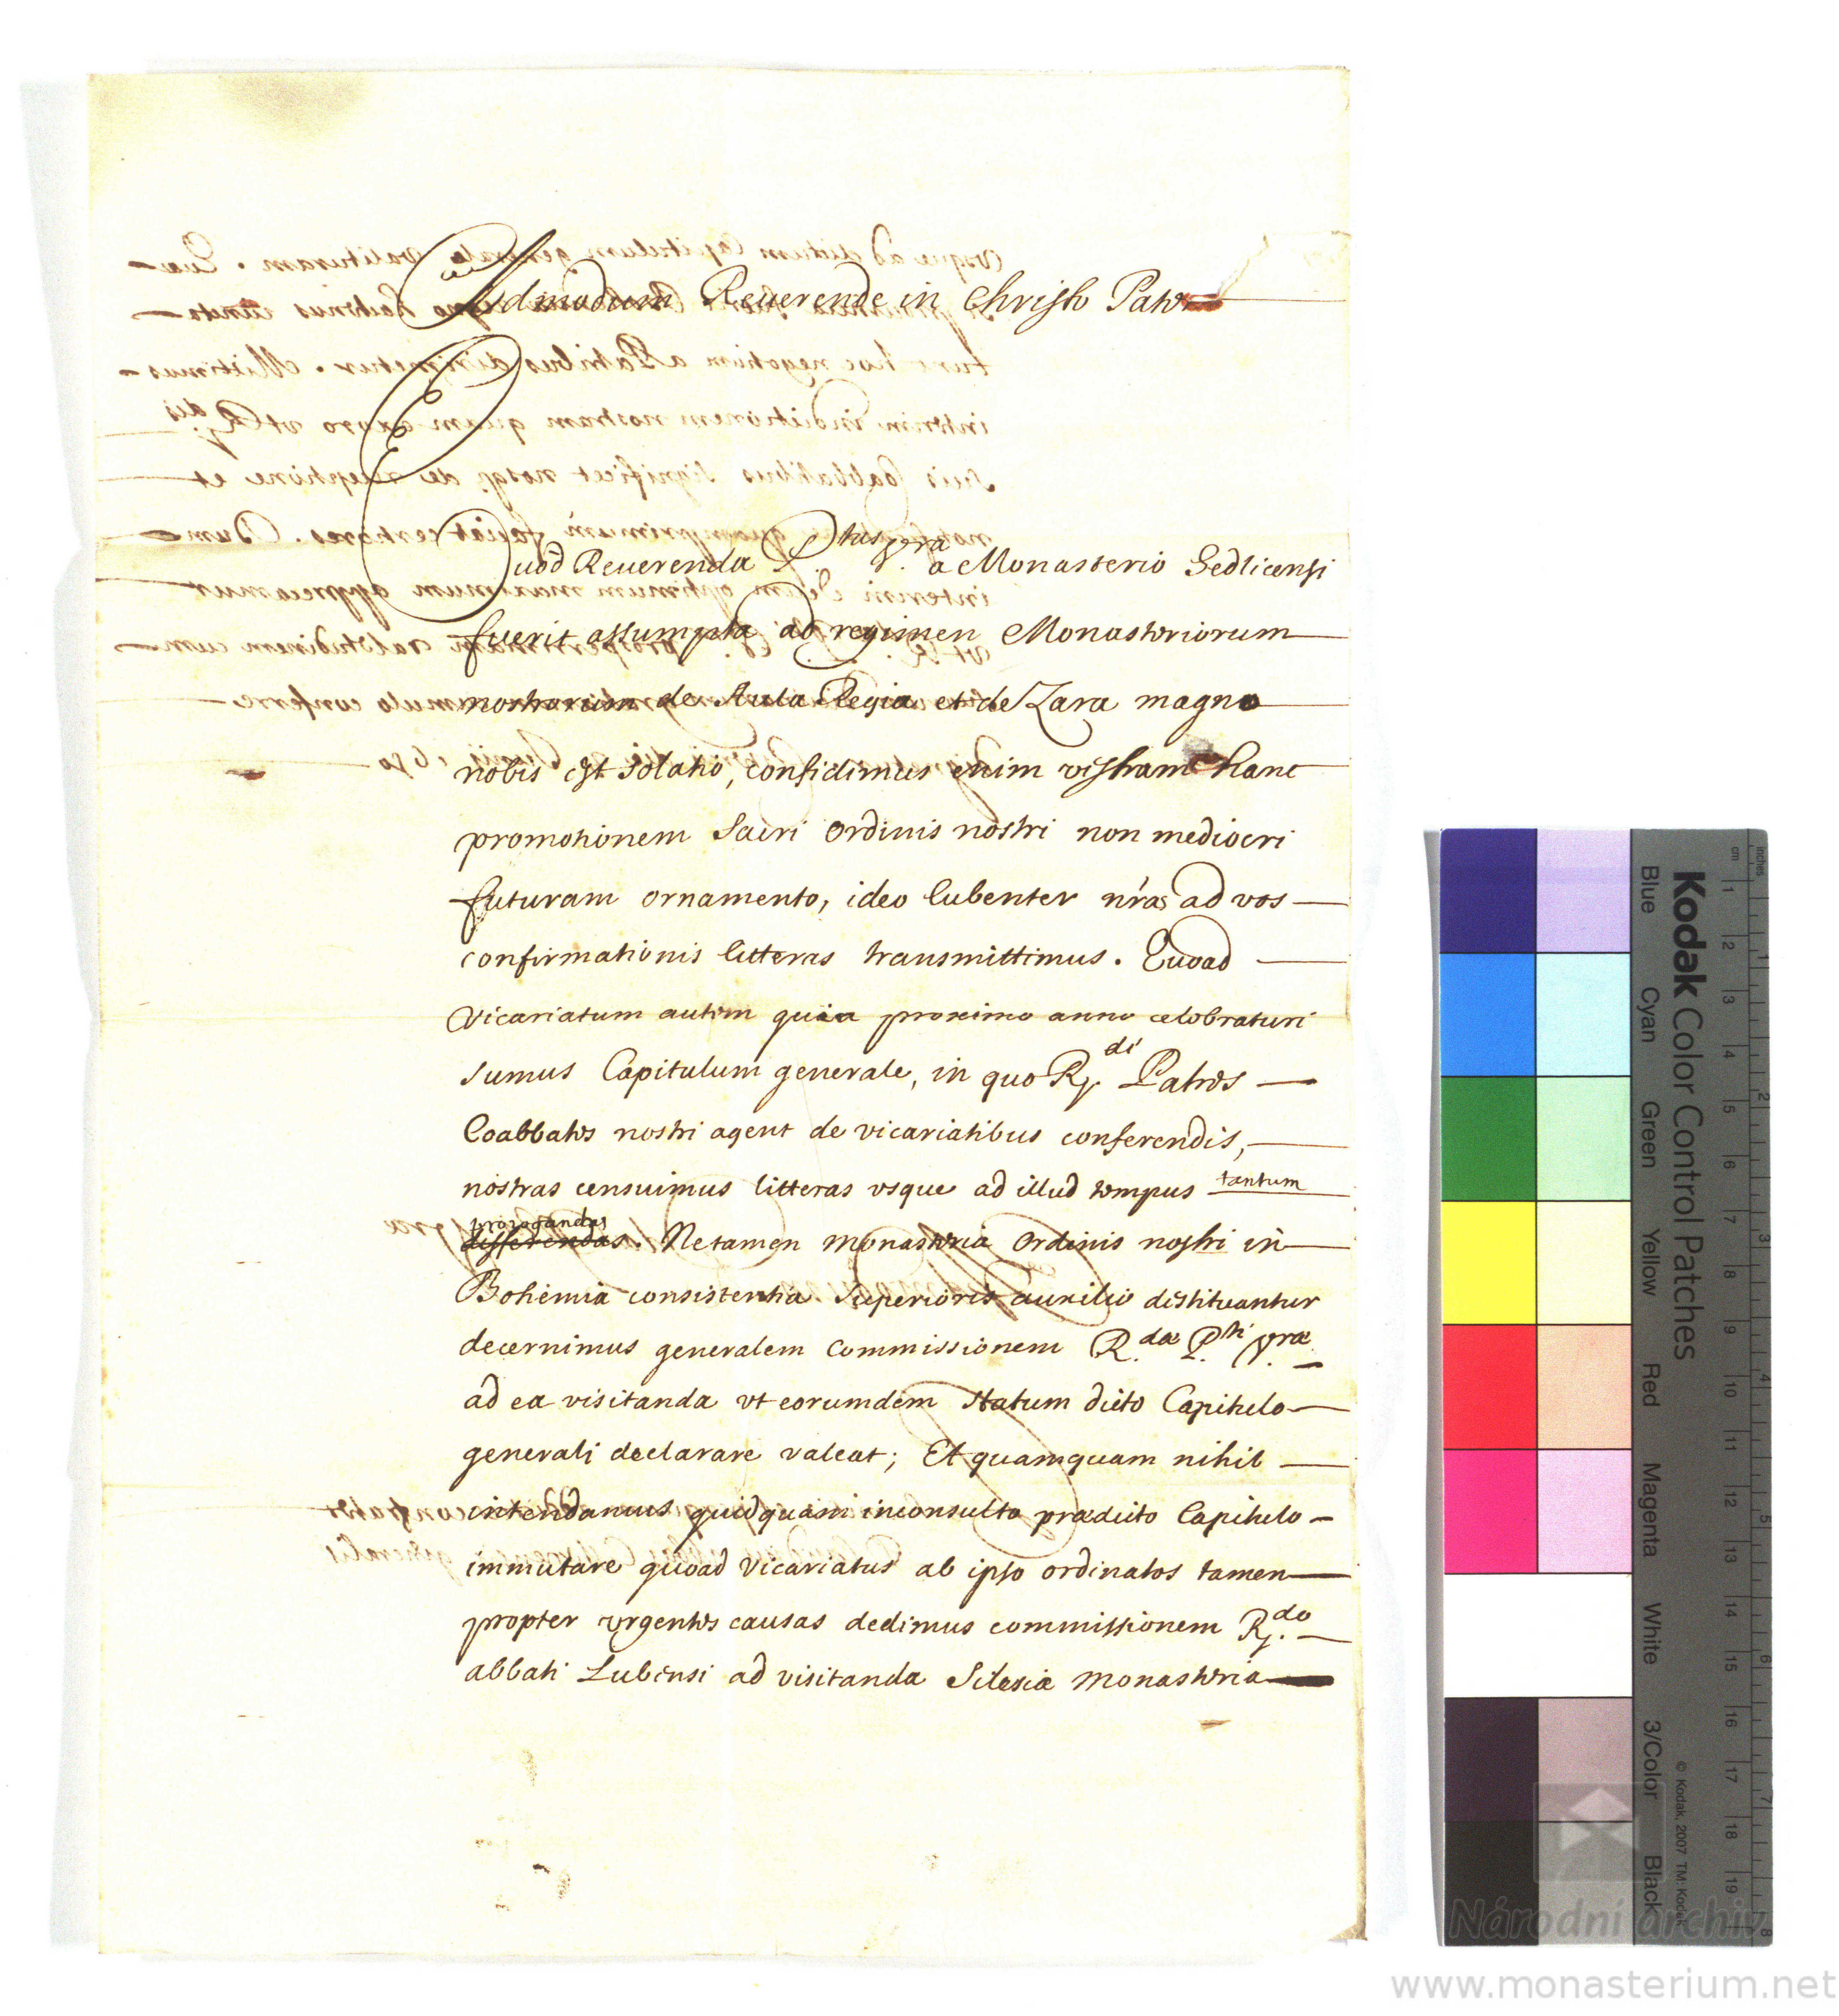 Admodum Reuerende in Christo Pater
Quod Reuerenda P.tas v.ra a Monasterio Sedlicensi
fuerit assumpta ad regimen Monasteriorum
nostrorum de Aula Regia et de Zara magno
nobis est solatio, confidimus enim vestram hanc
promotionem Sacri Ordinis nostri non mediocri
futuram ornamento, ideo lubenter nr̃as ad vos
confirmationis litteras transmittimus. Quoad
Vicariatum autem quia proximo anno celebraturi
sumus Capitulum generale, in quo R.di Patres
Coabbates nostri agent de vicariatibus conferendis,
nostras censuimus litteras vsque ad illud tempus tantum
prorogandas
differendas. Ne tamen monasteria Ordinis nostri in
Bohemia consistentia Superioris auxilio destituantur
decernimus generalem commissionem R.dæ P.ti v.ræ
ad ea visitanda vt eorumdem statum dicto Capitulo
generali declarare valeat; Et quamquam nihil
intendamus quidquam inconsulto prædicto Capitulo
immutare quoad Vicariatus ab ipso ordinatos tamen
propter vrgentes causas dedimus commissionem R.do
abbati Lubensi ad visitanda Silesiæ monasteria
Kodak Color Control Patches
Blue Cyan Green Yellow Red Magenta White 3/Color Black
© Kodak, 2007 TM: Kodak
cm 1 2 3 4 5 6 7 8 9 10 11 12 13 14 15 16 17 18 19
inches 1 2 3 4 5 6 7 8
Národní archiv
www.monasterium.net